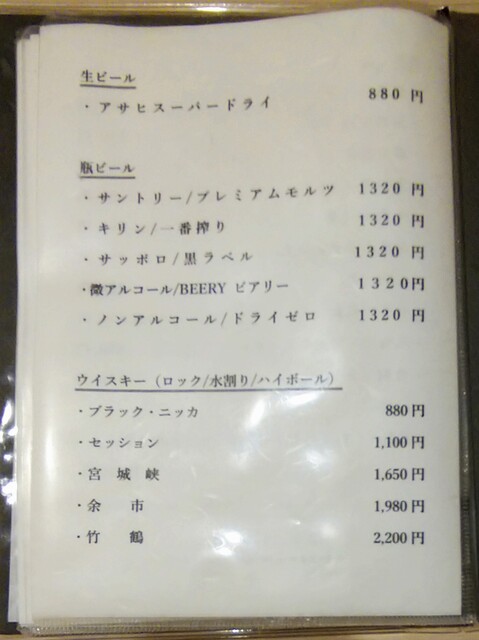 生ビール
・アサヒスーパードライ 880円
瓶ビール
・サントリー/プレミアムモルツ 1320円
・キリン/一番搾り 1320円
・サッポロ/黒ラベル 1320円
・微アルコール/BEERY ビアリー 1320円
・ノンアルコール/ドライゼロ 1320円
ウイスキー（ロック/水割り/ハイボール）
・ブラック・ニッカ 880円
・セッション 1,100円
・宮城峡 1,650円
・余市 1,980円
・竹鶴 2,200円